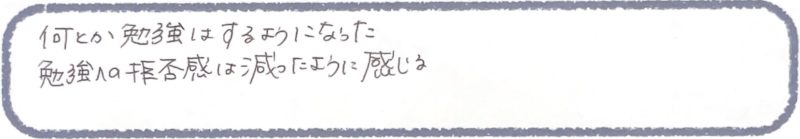 何とか勉強はするようになった
勉強への拒否感は減ったように感じる